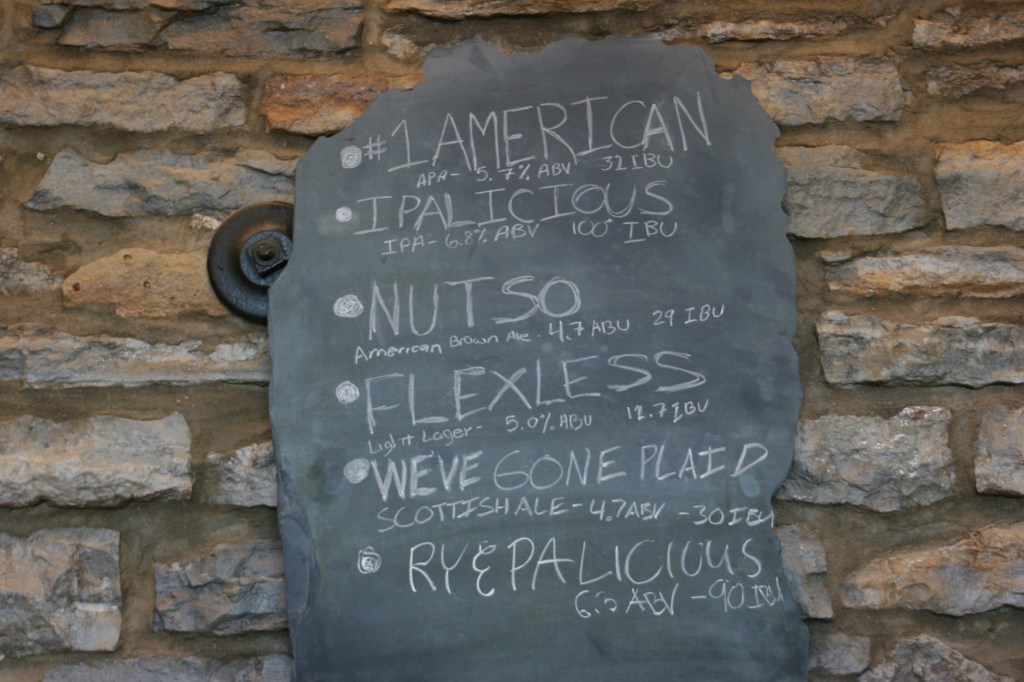 #1 AMERICAN
APA- 5.7% ABV 32 IBU
IPALICIOUS
IPA- 6.8% ABV 100+ IBU
NUTSO
American Brown Ale- 4.7 ABU 29 IBU
FLEXLESS
Light Lager- 5.0% ABU 12.7 IBU
WEVE GONE PLAID
SCOTTISH ALE - 4.7 ABV - 30 IBU
RYE PALICIOUS
6.5 ABV - 90 IBU